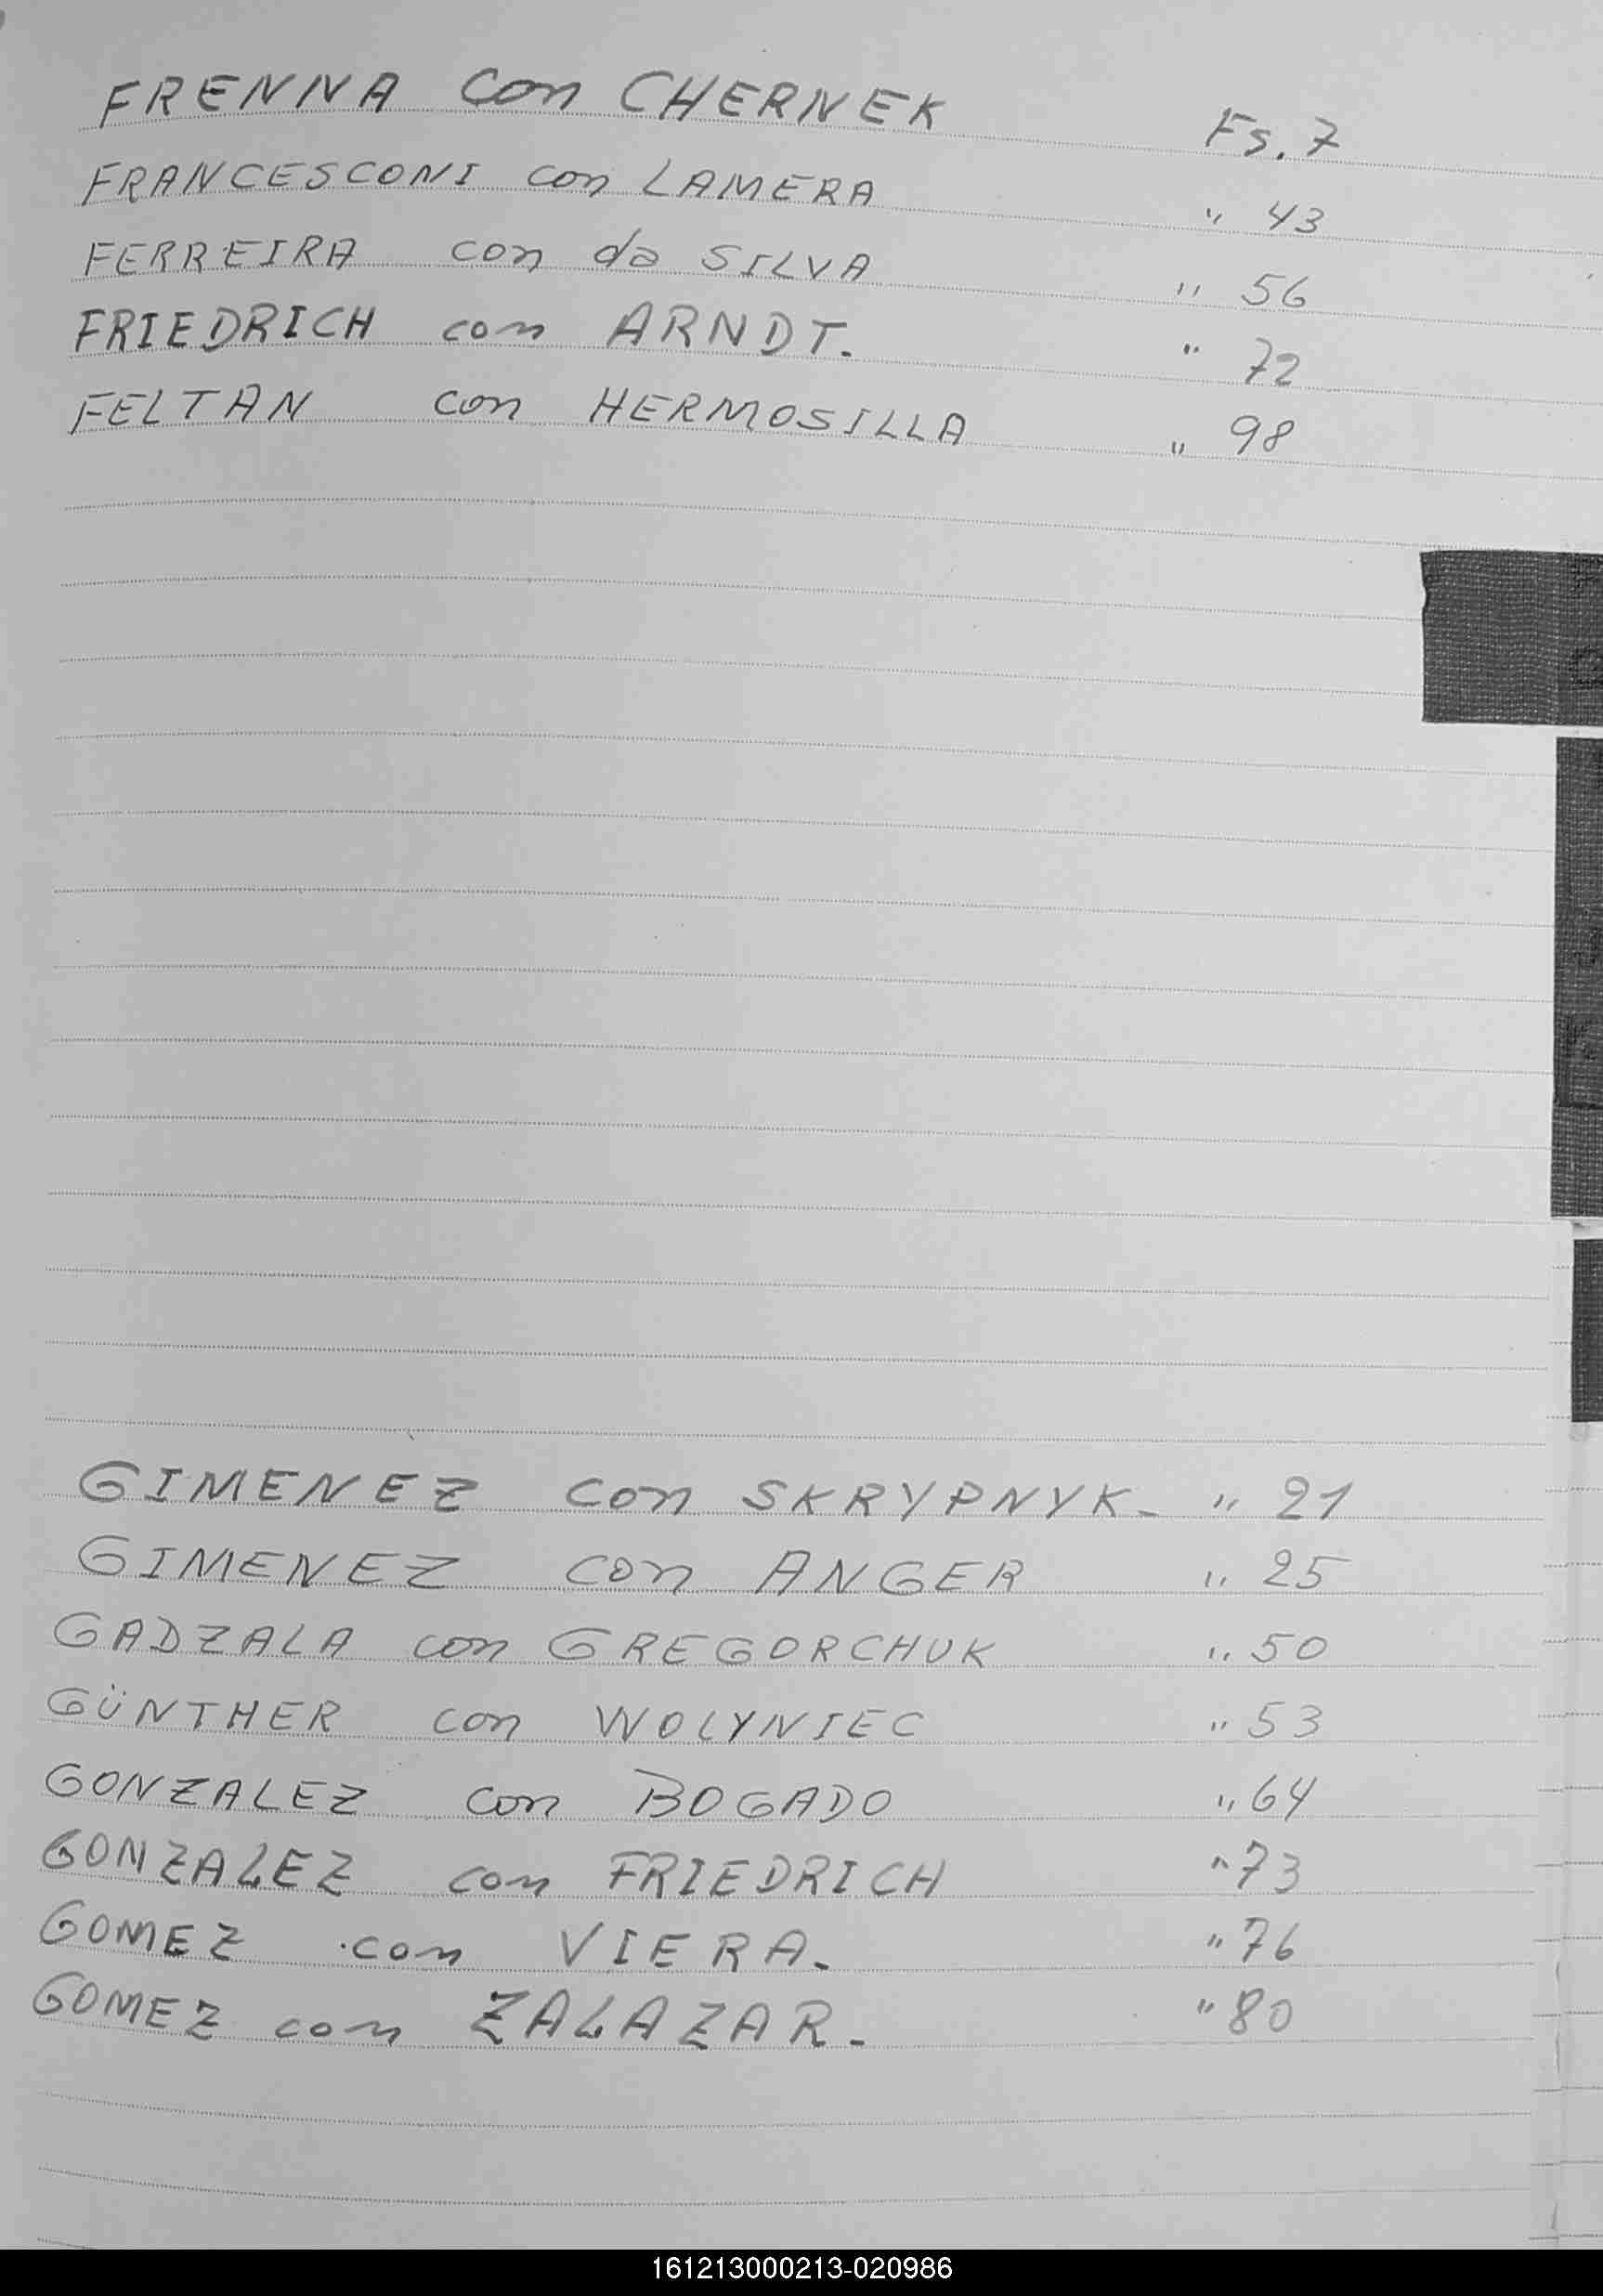 FRENNA con CHERNEK Fs. 7
FRANCESCONI con LAMERA " 43
FERREIRA con da SILVA " 56
FRIEDRICH con ARNDT. " 72
FELTAN con HERMOSILLA " 98
GIMENEZ con SKRYPNYK- " 21
GIMENEZ con ANGER " 25
GADZALA con GREGORCHUK " 50
GÜNTHER con WOLYNIEC " 53
GONZALEZ con BOGADO " 64
GONZALEZ con FRIEDRICH " 73
GOMEZ con VIERA. " 76
GOMEZ con ZALAZAR. " 80
161213000213-020986